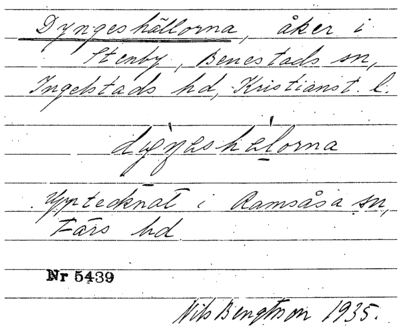 Dyngeshällorna, åker i
Stenby, Benestads sn,
Ingelstads hd, Kristianst. l.
Upptecknat i Ramsåsa sn,
Färs hd
Nr 5439
Nils Bengtsson 1935.